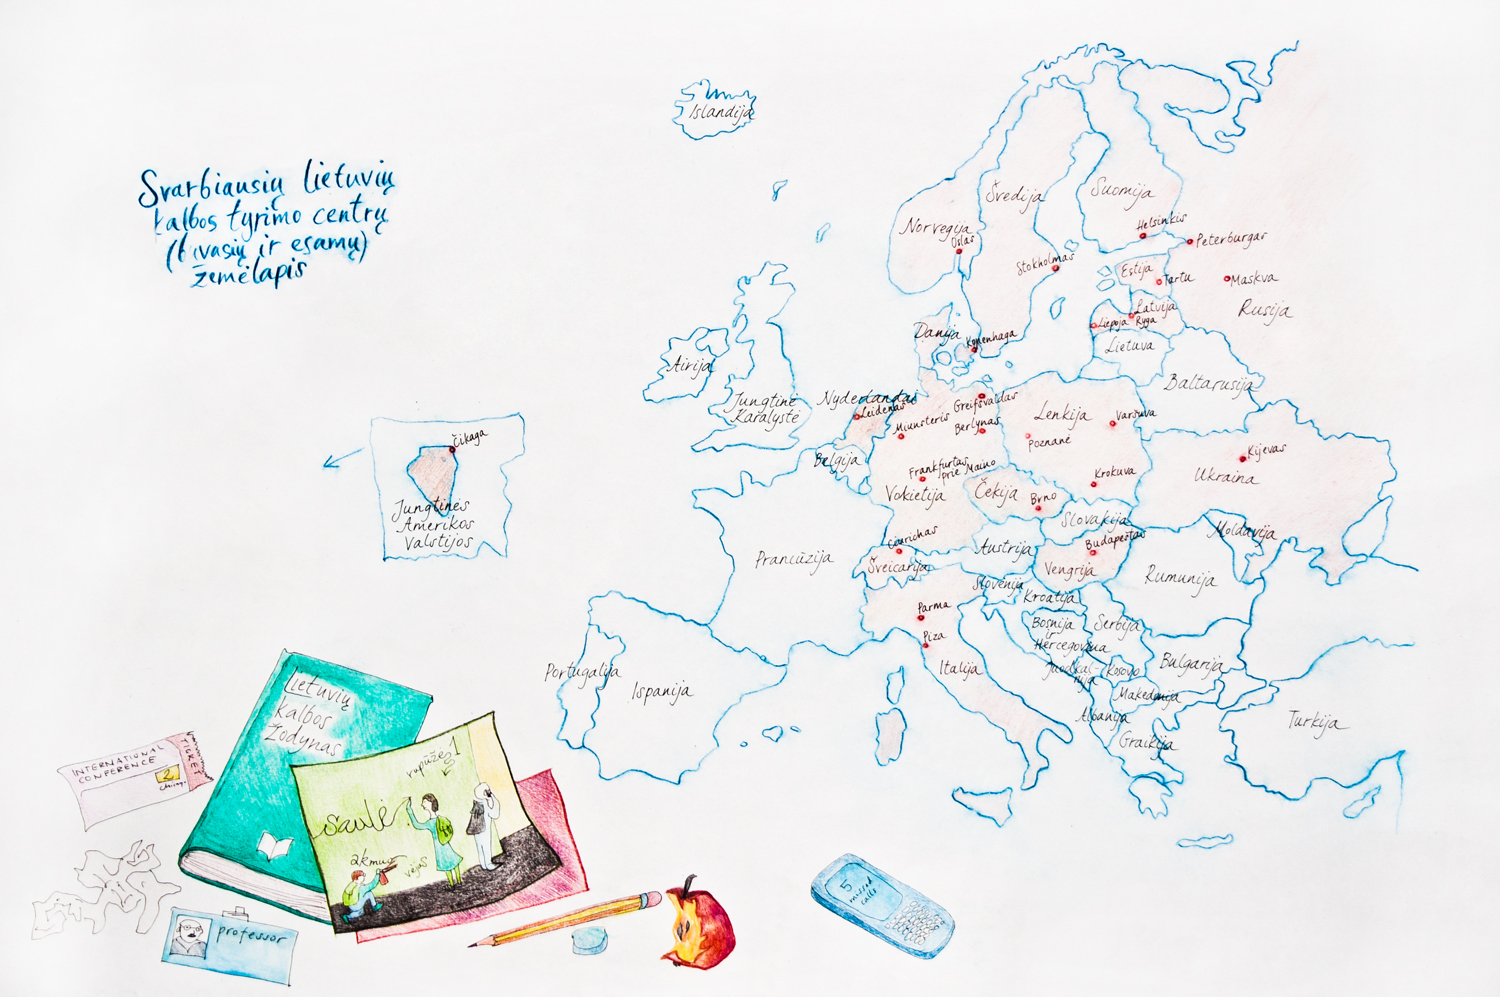 Svarbiausių lietuvių
kalbos tyrimo centrų
(buvusių ir esamų)
žemėlapis
Islandija
Švedija
Suomija
Norvegija
Oslas
Helsinkis
Peterburgas
Stokholmas
Estija
Tartu
Maskva
Rusija
Latvija
Liepoja
Ryga
Danija
Kopenhaga
Lietuva
Airija
Baltarusija
Jungtinė
Karalystė
Nyderlandai
Leidenas
Greifsvaldas
Miunsteris
Berlynas
Lenkija
Varšuva
Poznanė
Čikaga
Jungtinės
Amerikos
Valstijos
Belgija
Frankfurtas
prie Maino
Vokietija
Čekija
Brno
Krokuva
Kijevas
Ukraina
Slovakija
Moldavija
Ciurichas
Austrija
Budapeštas
Prancūzija
Šveicarija
Vengrija
Rumunija
Slovėnija
Kroatija
Parma
Bosnija
ir
Hercegovina
Serbija
Piza
Bulgarija
Portugalija
Ispanija
Italija
Juodkal-
nija
Kosovo
Makedonija
Albanija
Graikija
Turkija
Lietuvių
kalbos
žodynas
INTERNATIONAL
CONFERENCE
2
Chicago
TICKET
rupūžė
1
saulė
akmuo
vėjas
professor
5
missed
calls